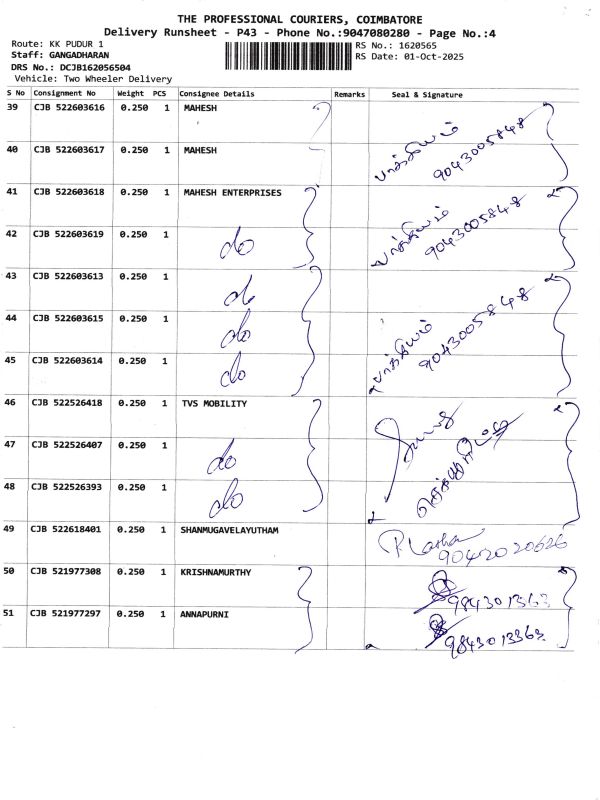 THE PROFESSIONAL COURIERS, COIMBATORE
Delivery Runsheet - P43 - Phone No.:9047080280 - Page No.:4
Route: KK PUDUR 1
Staff: GANGADHARAN
DRS No.: DCJB162056504
Vehicle: Two Wheeler Delivery
RS No.: 1620565
RS Date: 01-Oct-2025
S No Consignment No Weight PCS Consignee Details Remarks Seal & Signature
39 CJB 522603616 0.250 1 MAHESH
40 CJB 522603617 0.250 1 MAHESH பாக்கியம் 9043005848
41 CJB 522603618 0.250 1 MAHESH ENTERPRISES
42 CJB 522603619 0.250 1 do பாக்கியம் 9043005848
43 CJB 522603613 0.250 1 do
44 CJB 522603615 0.250 1 do பாக்கியம் 9043005848
45 CJB 522603614 0.250 1 do
46 CJB 522526418 0.250 1 TVS MOBILITY
47 CJB 522526407 0.250 1 do
48 CJB 522526393 0.250 1 do
49 CJB 522618401 0.250 1 SHANMUGAVELAYUTHAM 9042020626
50 CJB 521977308 0.250 1 KRISHNAMURTHY 9843013363
51 CJB 521977297 0.250 1 ANNAPURNI 9843013363